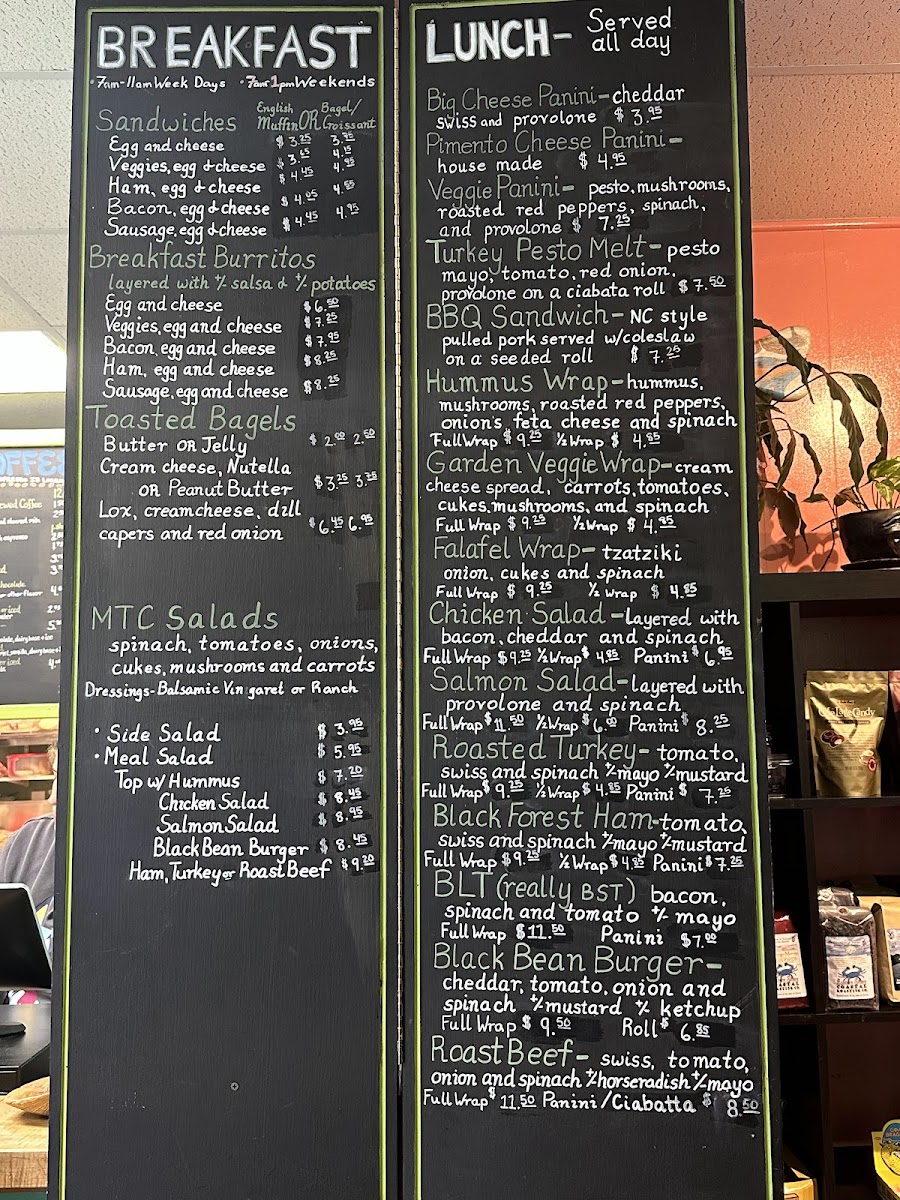 BREAKFAST
•7am-11am Week Days •7am-1pm Weekends
Sandwiches English Muffin OR Bagel/Croissant
Egg and cheese $3.25 3.95
Veggies, egg & cheese $3.65 4.15
Ham, egg & cheese $4.45 4.95
Bacon, egg & cheese $4.05 4.55
Sausage, egg & cheese $4.45 4.95
Breakfast Burritos
layered with +/- salsa & +/- potatoes
Egg and cheese $6.50
Veggies, egg and cheese $7.25
Bacon, egg and cheese $7.95
Ham, egg and cheese $8.25
Sausage, egg and cheese $8.25
Toasted Bagels
Butter OR Jelly $2.00 2.50
Cream cheese, Nutella
OR Peanut Butter $3.25 3.75
Lox, creamcheese, dill
capers and red onion $6.45 6.95
MTC Salads
spinach, tomatoes, onions,
cukes, mushrooms and carrots
Dressings-Balsamic Vin garet or Ranch
• Side Salad $3.95
• Meal Salad $5.95
Top w/ Hummus $7.20
Chicken Salad $8.45
Salmon Salad $8.95
Black Bean Burger $8.45
Ham, Turkey or Roast Beef $9.20
LUNCH- Served
all day
Big Cheese Panini-cheddar
swiss and provolone $3.95
Pimento Cheese Panini-
house made $4.95
Veggie Panini- pesto, mushrooms,
roasted red peppers, spinach,
and provolone $7.25
Turkey Pesto Melt- pesto
mayo, tomato, red onion,
provolone on a ciabata roll $7.50
BBQ Sandwich- NC style
pulled pork served w/coleslaw
on a seeded roll $7.25
Hummus Wrap-hummus,
mushrooms, roasted red peppers,
onions, feta cheese and spinach
Full Wrap $9.25 ½ Wrap $4.85
Garden Veggie Wrap-cream
cheese spread, carrots, tomatoes,
cukes, mushrooms, and spinach
Full Wrap $9.25 ½ Wrap $4.95
Falafel Wrap- tzatziki
onion, cukes and spinach
Full Wrap $9.25 ½ Wrap $4.85
Chicken Salad-layered with
bacon, cheddar and spinach
Full Wrap $9.25 ½ Wrap $4.85 Panini $6.95
Salmon Salad-layered with
provolone and spinach
Full Wrap $11.50 ½ Wrap $6.00 Panini $8.25
Roasted Turkey- tomato,
swiss and spinach +/- mayo +/- mustard
Full Wrap $9.25 ½ Wrap $4.85 Panini $7.25
Black Forest Ham-tomato,
swiss and spinach +/- mayo +/- mustard
Full Wrap $9.25 ½ Wrap $4.85 Panini $7.25
BLT (really BST) bacon,
spinach and tomato +/- mayo
Full Wrap $11.50 Panini $7.00
Black Bean Burger-
cheddar, tomato, onion and
spinach +/- mustard +/- ketchup
Full Wrap $9.50 Roll $6.85
Roast Beef- swiss, tomato,
onion and spinach +/- horseradish +/- mayo
Full Wrap $11.50 Panini/Ciabatta $8.50